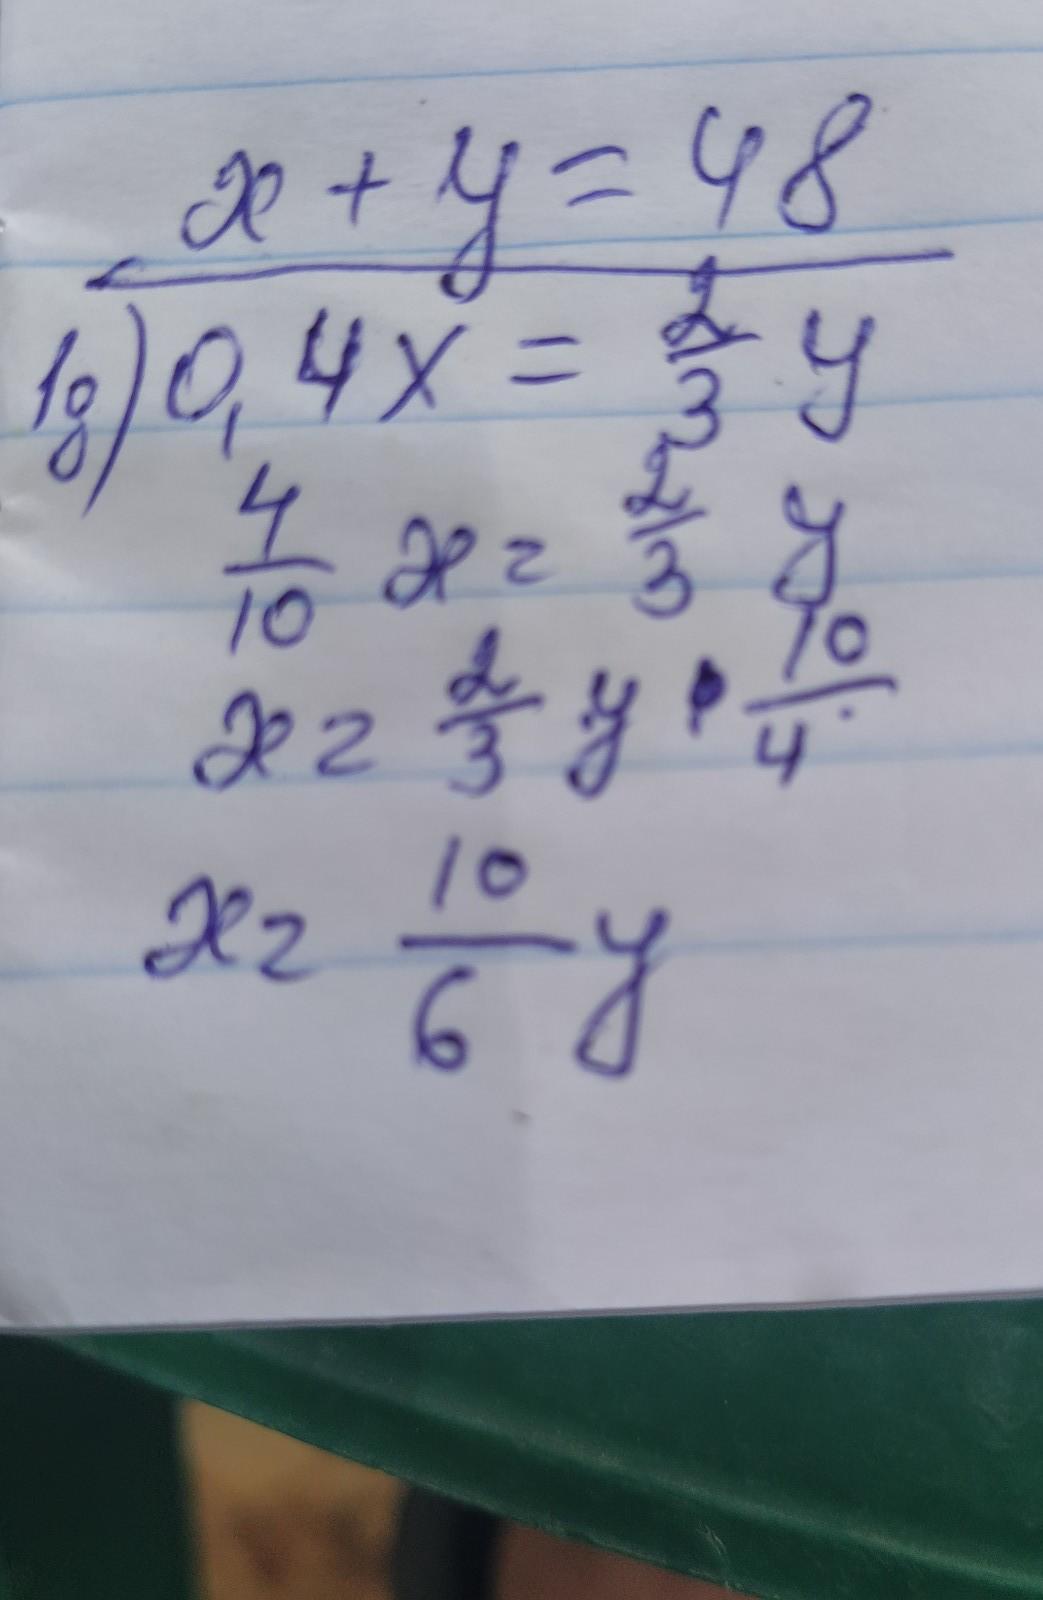 x + y = 48
1g) 0,4x = 2/3 y
4/10 x = 2/3 y
x = 2/3 y • 10/4
x = 10/6 y